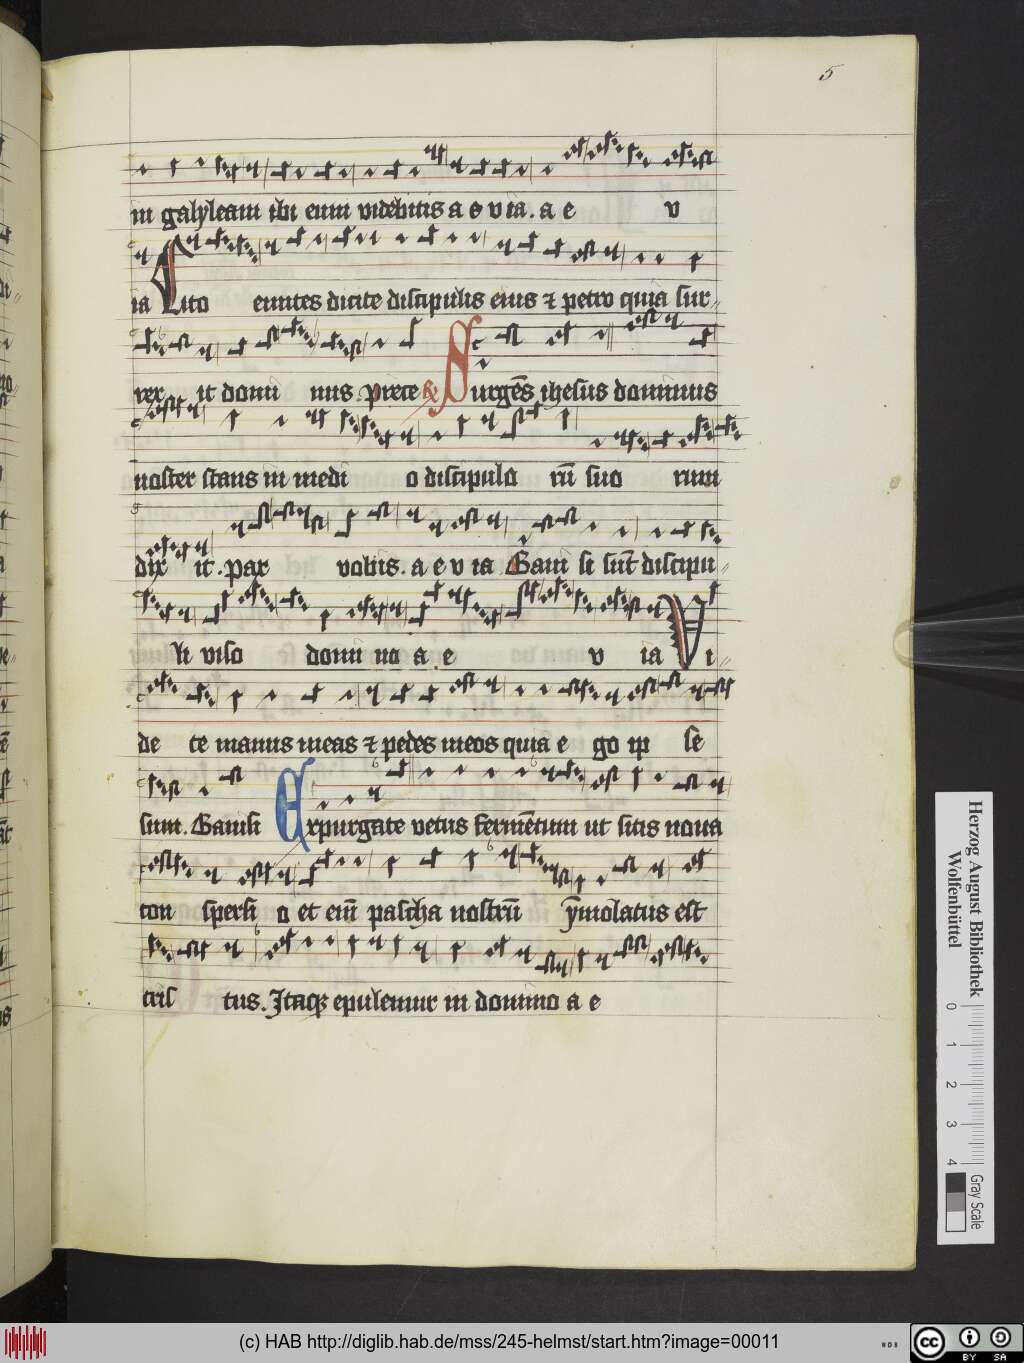 5
in galyleam ibi eum videbitis a e v ia. a e v
ia Cito euntes dicite discipulis eius ⁊ petro quia sur
rex it domi nus. prece ℟ Surgēs ihesus dominus
noster stans in medi o discipulo rū suo rum
dix it. pax vobis. a e v ia Gaui si sūt discipu
li viso domi no a e v ia Vi
de te manus meas ⁊ pedes meos quia e go ip se
sum. Gauisi Expurgate vetus fermētum ut sitis noua
con spersi o et eim pascha nostrū ymolatus est
cris tus. Itaqꝫ epulemur in domino a e
Herzog August Bibliothek
Wolfenbüttel
0 1 2 3 4
Gray Scale
(c) HAB http://diglib.hab.de/mss/245-helmst/start.htm?image=00011
WDB
cc BY SA